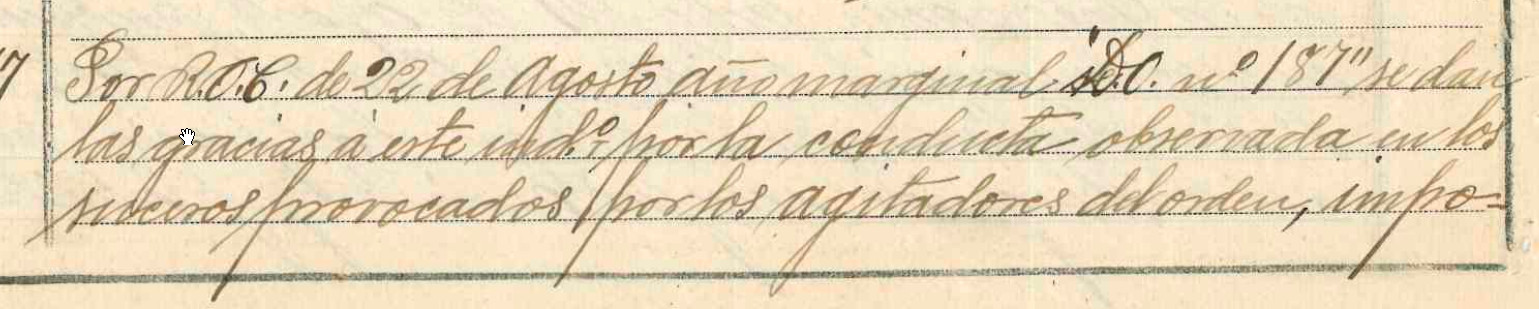 7 Por R.O.C. de 22 de Agosto año marginal "D.O. nº 187" se dan
las gracias á este indº por la conducta observada en los
sucesos provocados por los agitadores del orden, impo=